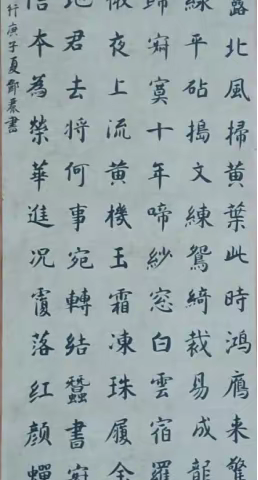 露北風掃黄葉此時鴻鴈来驚
平砧搗文練鴛綺裁易成龍
歸寂寞十年啼紗窓白雲宿羅
夜上流黄機玉霜凍珠履金
地君去將何事宛轉結蠶書寂
本為榮華進况覆落紅顏蟬
行庚子夏鄭書